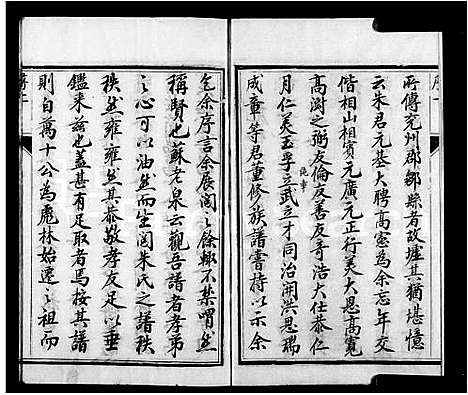 所傳兗州郡鄒縣者故墟其猶堪憶
云朱君元基大聘高憲為余忘年交
偕相山相賓元廣元正行美大恩高寬
高澍之弼友倫友善友奇浩大任恭仁
月仁美玉孚立武立才同治開洪恩瑞
成章等君重修族譜書持以示余
乞余序言余展閱之餘輒不禁喟然
稱賢也蘇老泉云觀吾譜者孝弟
之心可以油然而生閱朱氏之譜秩
秩然雍雍然其恭敬孝友足以垂
鑑來茲也蓋甚有足取者焉按其譜
則自萬十公為鹿林始遷之祖而